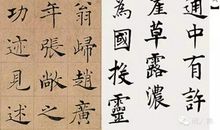 通中有許
崖草露濃
為國投靈
翁歸趙廣
年張敞之
功迹見述